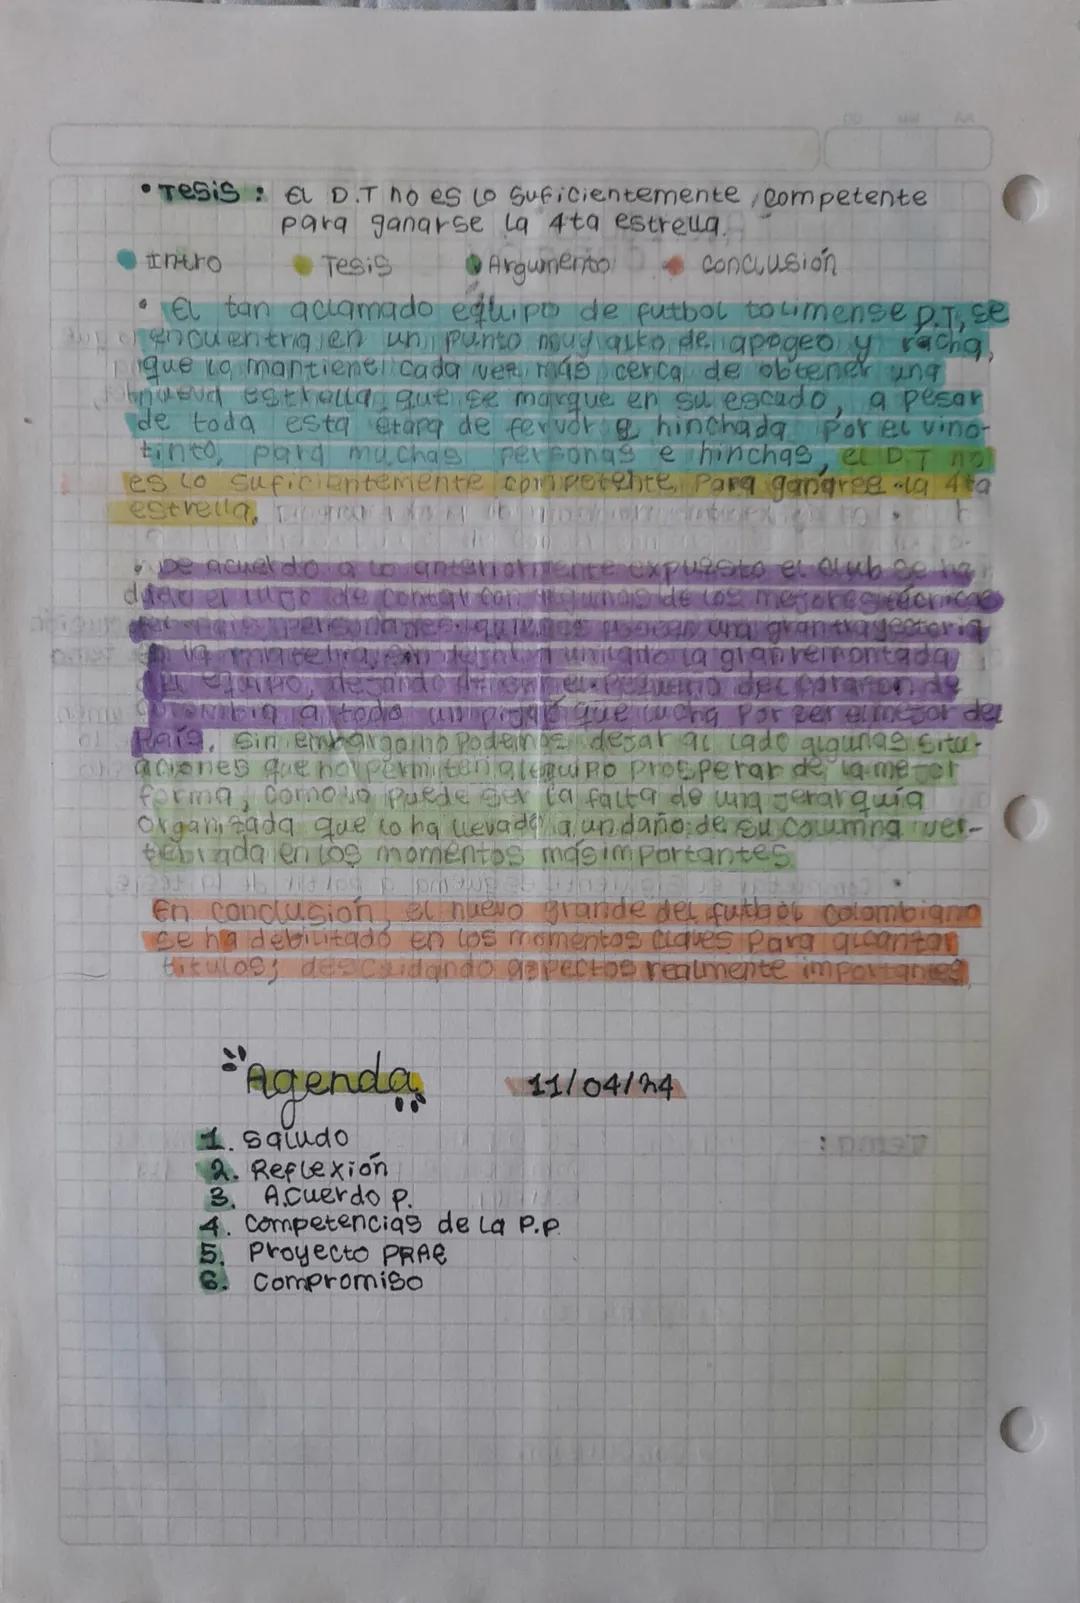 • Tesis: El D.T no es lo suficientemente competente
para ganarse la 4ta estrella.
Intro Tesis Argumento conclusión
• El tan aclamado equipo de futbol tolimense D.T, se
encuentra en un punto muy alto de apogeo y racha,
que lo mantiene cada vez más cerca de obtener una
nueva estrella que se marque en su escudo, a pesar
de toda esta etapa de fervor e hinchada por el vino-
tinto, para muchas personas e hinchas, el D.T no
es lo suficientemente competente para ganarse la 4ta
estrella.
• De acuerdo a lo anteriormente expuesto el club se ha
dado el lujo de contar con algunos de los mejores técnicos
del país, quienes poseen una gran trayectoria
en la materia, la gran remontada
equipo, dejando en el del corazón de
a todo un que lucha por ser el mejor del
País. Sin embargo no podemos dejar al lado algunas situ-
aciones que no permiten al equipo prosperar de la mejor
forma, como lo puede ser la falta de una jerarquía
organizada que lo ha llevado a un daño de su columna ver-
tebrada en los momentos más importantes.
En conclusión, el nuevo grande del futbol colombiano
se ha debilitado en los momentos claves para alcanzar
titulos; descuidando aspectos realmente importantes.
Agenda 11/04/24
1. Saludo
2. Reflexión
3. Acuerdo p.
4. Competencias de la P.P
5. Proyecto PRAE
6. Compromiso